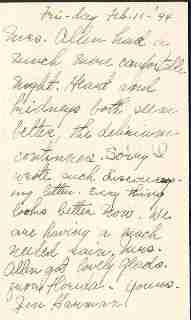 Fri-day Feb. 11-'44
Mrs. Allen had a
much more comfortable
night. Heart and
kidneys both seem
better, the delirium
continues. Sorry I
wrote such discourag-
ing letter. Every thing
looks better now. We
are having a much
needed rain, Mrs.
Allen got lovely glads.
from Florist. Yours.